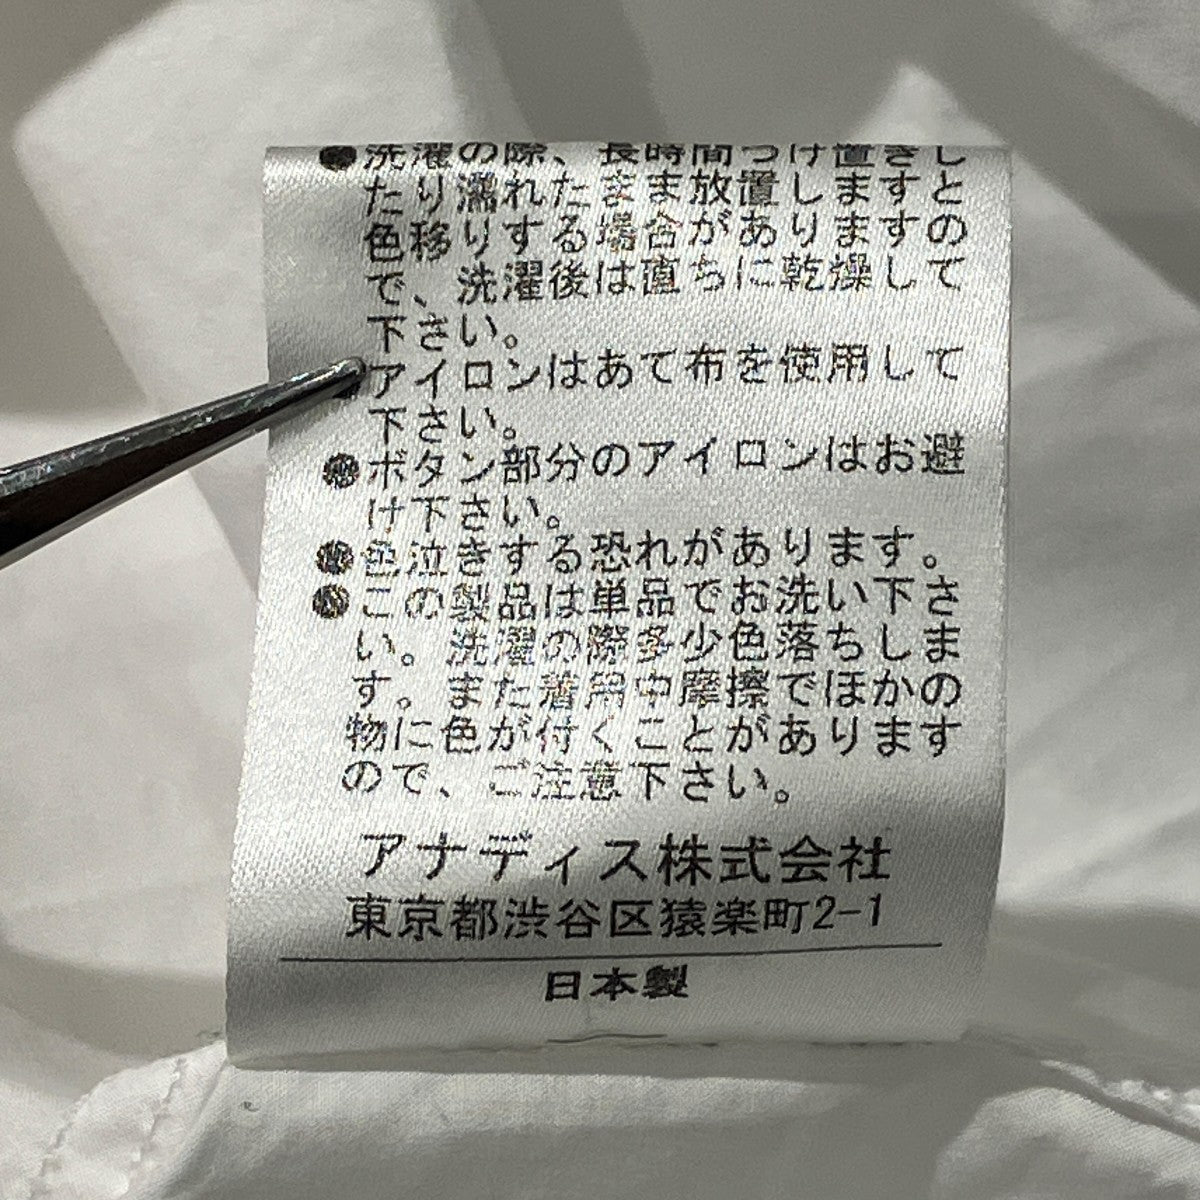 ●洗濯の際、長時間つけ置きし
たり濡れたまま放置しますと
色移りする場合がありますの
で、洗濯後は直ちに乾燥して
下さい。
●アイロンはあて布を使用して
下さい。
●ボタン部分のアイロンはお避
け下さい。
●色泣きする恐れがあります。
●この製品は単品でお洗い下さ
い。洗濯の際多少色落ちしま
す。また着用中摩擦でほかの
物に色が付くことがあります
ので、ご注意下さい。
アナディス株式会社
東京都渋谷区猿楽町2-1
日本製